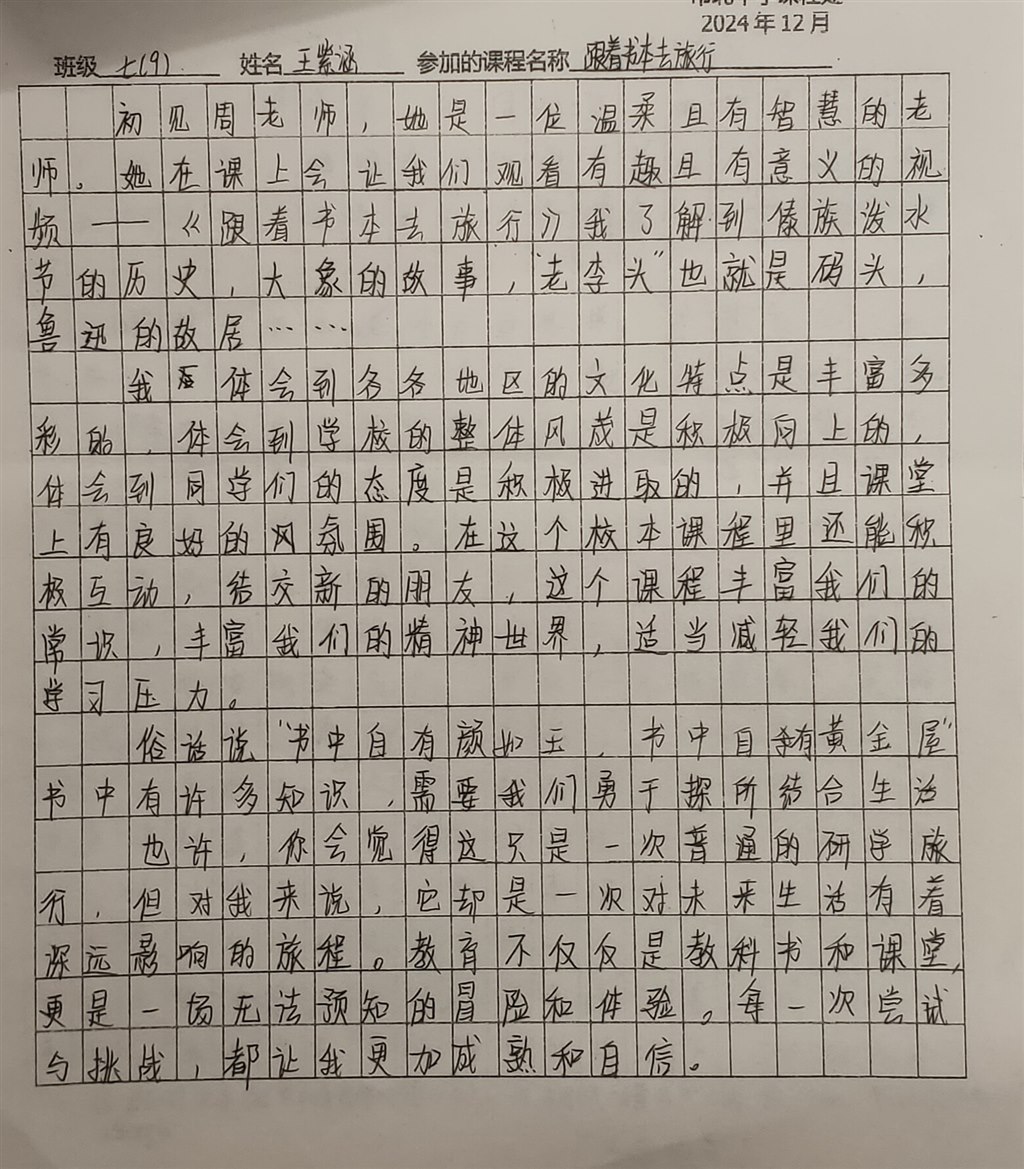 2024年12月
班级 七(9) 姓名 王紫涵 参加的课程名称 跟着书本去旅行
初见周老师，她是一位温柔且有智慧的老
师。她在课上会让我们观看有趣且有意义的视
频——《跟着书本去旅行》我了解到傣族泼水
节的历史，大象的故事，“老李头”也就是码头，
鲁迅的故居……
我 体会到各各地区的文化特点是丰富多
彩的，体会到学校的整体风茂是积极向上的，
体会到同学们的态度是积极进取的，并且课堂
上有良好的风氛围。在这个校本课程里还能积
极互动，结交新的朋友，这个课程丰富我们的
常识，丰富我们的精神世界，适当减轻我们的
学习压力。
俗话说“书中自有颜如玉，书中自有黄金屋”
书中有许多知识，需要我们勇于探所结合生活
也许，你会觉得这只是一次普通的研学旅
行，但对我来说，它却是一次对未来生活有着
深远影响的旅程。教育不仅仅是教科书和课堂，
更是一场无法预知的冒险和体验。每一次尝试
与挑战，都让我更加成熟和自信。